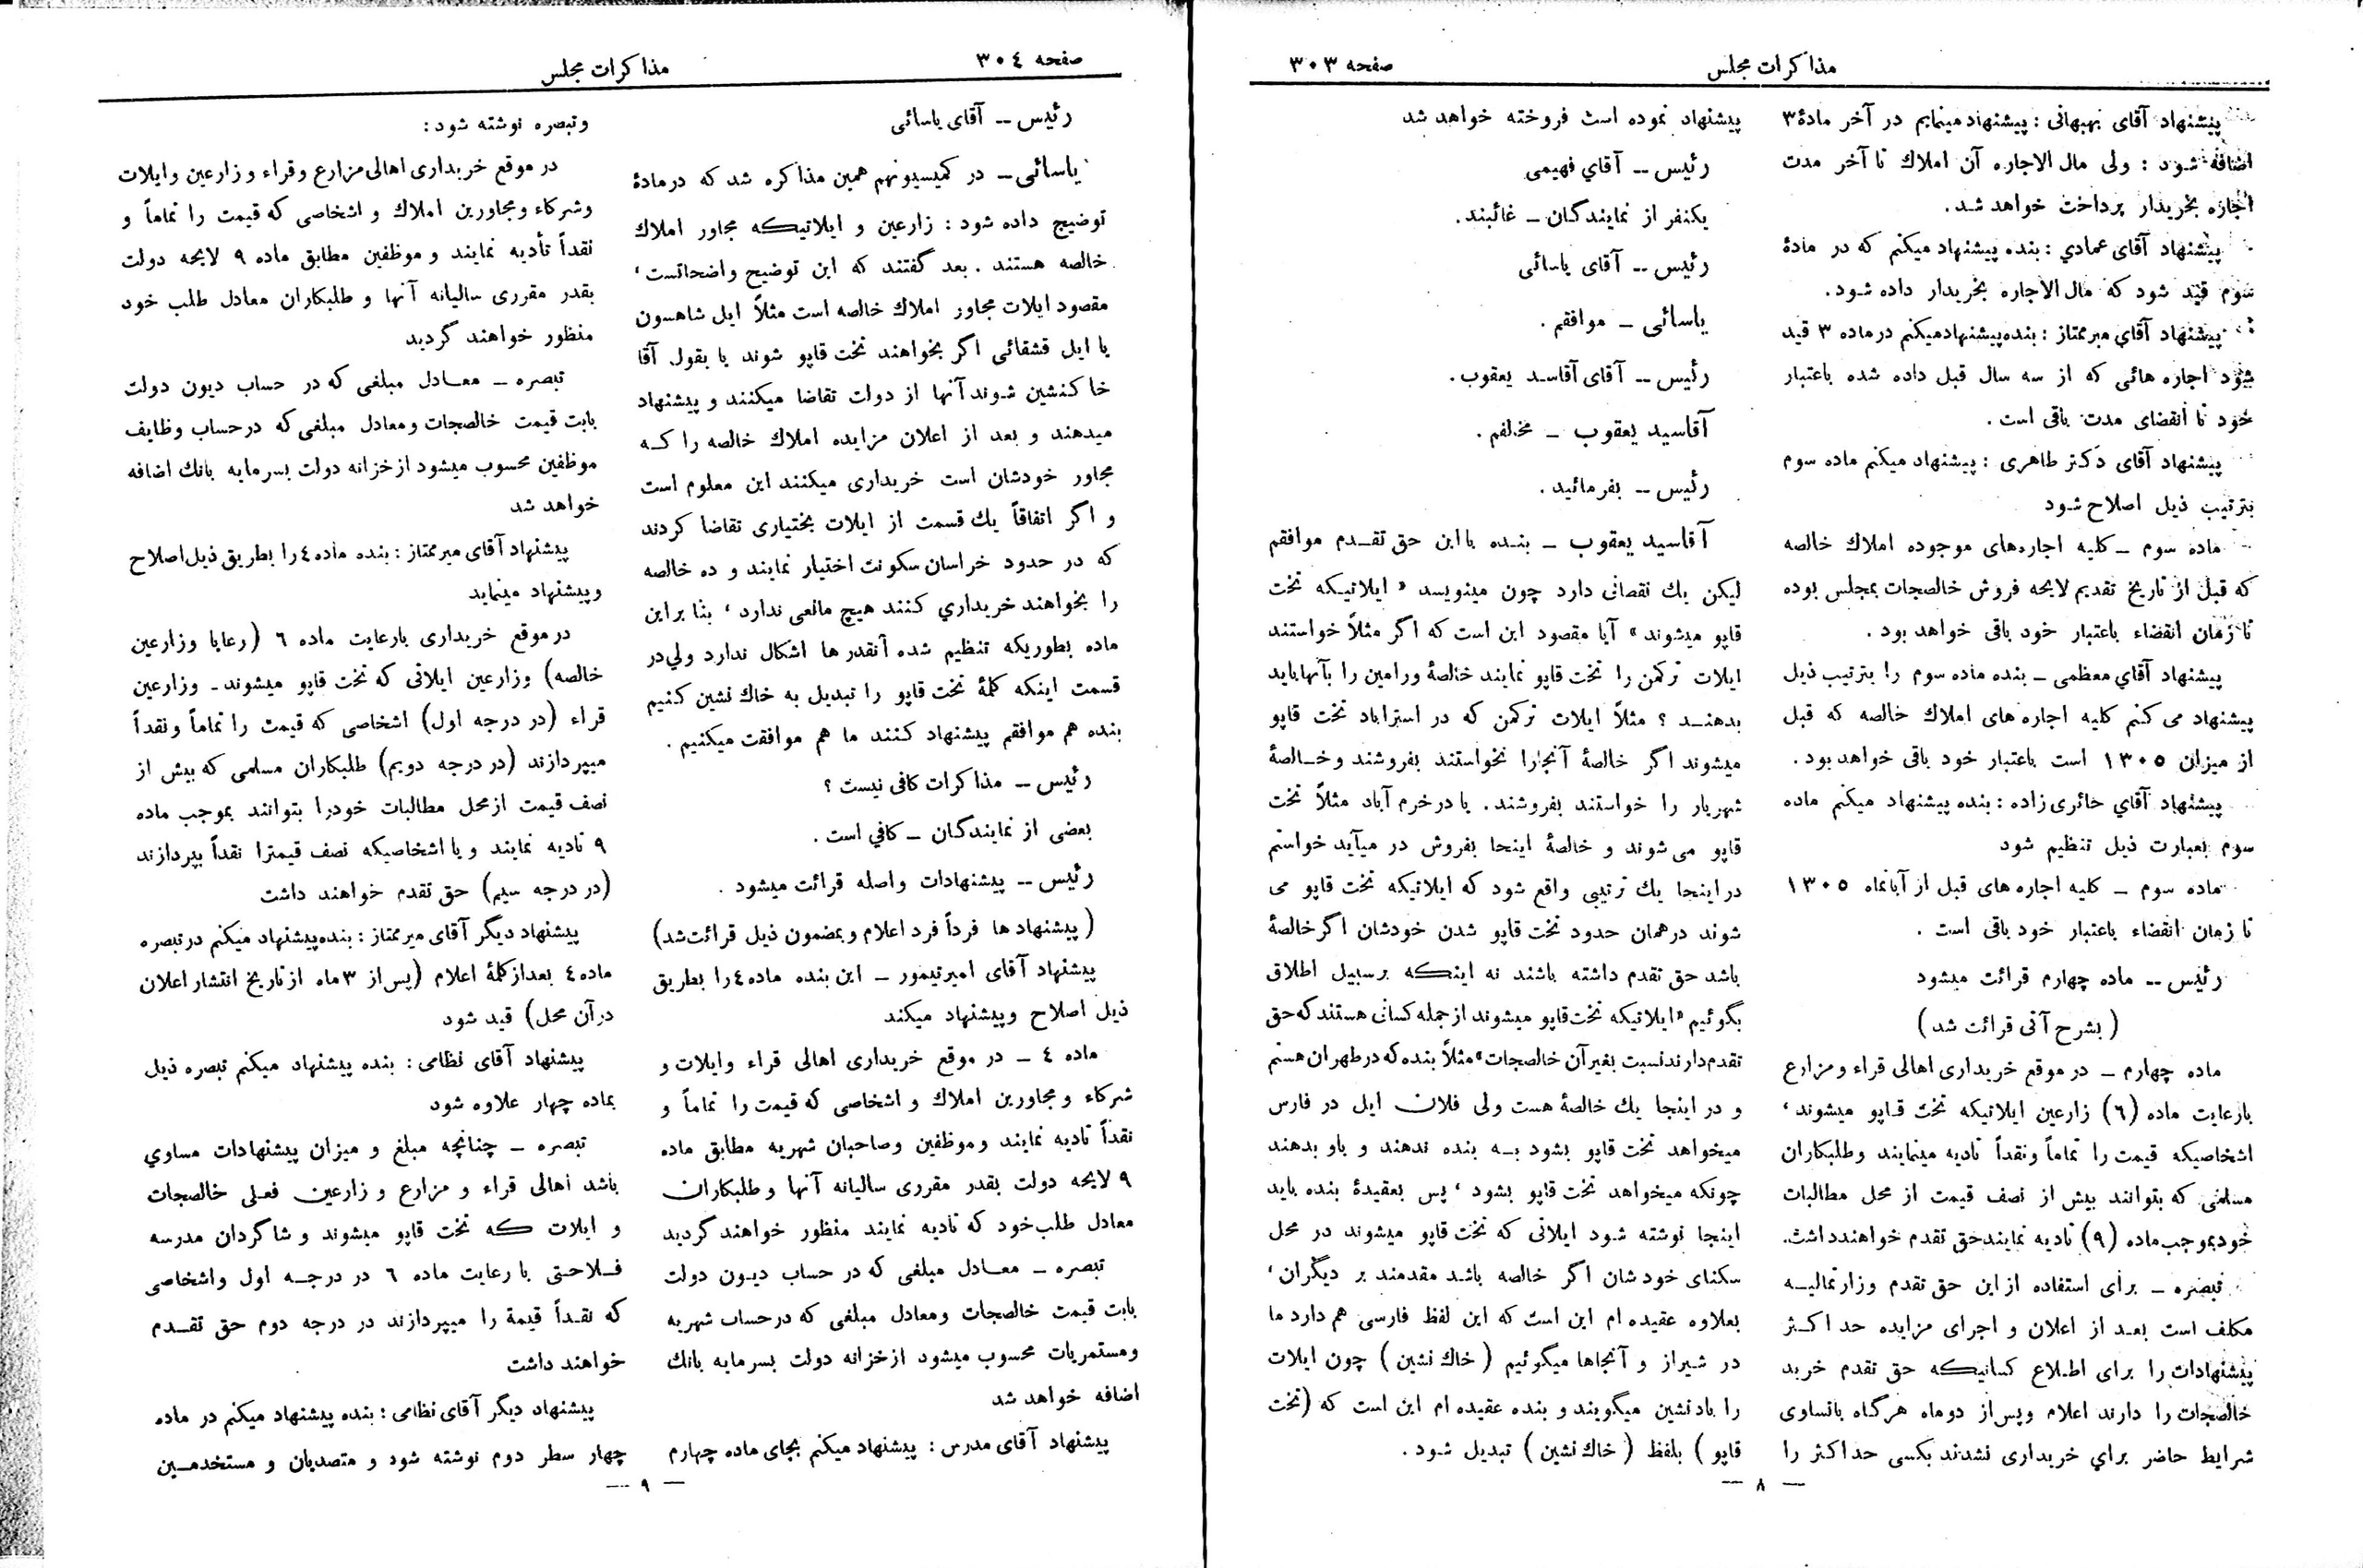 مذاکرات مجلس
صفحه ۳۰۳
پیشنهاد آقای بهبهانی : پیشنهاد مینمایم در آخر مادۀ ۳
اضافه شود : ولی مال الاجاره آن املاك تا آخر مدت
اجاره بخریدار پرداخت خواهد شد.
پیشنهاد آقای عمادي : بنده پیشنهاد میکنم که در مادۀ
سوم قید شود که مال الاجاره بخریدار داده شود.
پیشنهاد آقاي میرممتاز : بنده پیشنهاد میکنم در ماده ۳ قید
شود اجاره هائی که از سه سال قبل داده شده باعتبار
خود تا انقضای مدت باقی است .
پیشنهاد آقای دکتر طاهری : پیشنهاد میکنم ماده سوم
بترتیب ذیل اصلاح شود
ماده سوم ــ کلیه اجاره‌های موجوده املاك خالصه
که قبل از تاریخ تقدیم لایحه فروش خالصجات بمجلس بوده
تا زمان انقضاء باعتبار خود باقی خواهد بود .
پیشنهاد آقاي معظمی ــ بنده ماده سوم را بترتیب ذیل
پیشنهاد می کنم کلیه اجاره های املاك خالصه که قبل
از میزان ۱۳۰۵ است باعتبار خود باقی خواهد بود .
پیشنهاد آقاي حائری زاده : بنده پیشنهاد میکنم ماده
سوم بعبارت ذیل تنظیم شود
ماده سوم ــ کلیه اجاره های قبل از آبانماه ۱۳۰۵
تا زمان انقضاء باعتبار خود باقی است .
رئیس ــ ماده چهارم قرائت میشود
( بشرح آتی قرائت شد )
ماده چهارم ــ در موقع خریداری اهالی قراء و مزارع
بارعایت ماده (٦) زارعین ایلاتیکه تخت قاپو میشوند ،
اشخاصیکه قیمت را تماماً ونقداً تادیه مینمایند وطلبکاران
مسلمی که بتوانند بیش از نصف قیمت از محل مطالبات
خود بموجب ماده (۹) تادیه نمایند حق تقدم خواهند داشت.
تبصره ــ برای استفاده از این حق تقدم وزارتمالیــه
مکلف است بعد از اعلان و اجرای مزایده حد اکــثر
پیشنهادات را برای اطلاع کسانیکه حق تقدم خرید
خالصجات را دارند اعلام وپس از دو ماه هرگاه باتساوی
شرایط حاضر براي خریداری نشدند بکسی حداکثر را
پیشنهاد نموده است فروخته خواهد شد
رئیس ــ آقاي فهیمی
یکنفر از نمایندگان ــ غائبند.
رئیس ــ آقای یاسائی
یاسائی ــ موافقم .
رئیس ــ آقای آقاسید یعقوب.
آقاسید یعقوب ــ مخالفم .
رئیس ــ بفرمائید .
آقاسید یعقوب ــ بنده با این حق تقــدم موافقم
لیکن یك نقصانی دارد چون مینویسد « ایلاتیکه تخت
قاپو میشوند » آیا مقصود این است که اگر مثلاً خواستند
ایلات ترکمن را تخت قاپو نمایند خالصۀ ورامین را بآنها باید
بدهنــد ؟ مثلاً ایلات ترکمن که در استراباد تخت قاپو
میشوند اگر خالصۀ آنجارا نخواستند بفروشند وخــالصۀ
شهریار را خواستند بفروشند . یا درخرم آباد مثلاً تخت
قاپو می شوند و خالصۀ اینجا بفروش در میآید خواستم
در اینجا یك ترتیبی واقع شود که ایلاتیکه تخت قاپو می
شوند درهمان حدود تخت قاپو شدن خودشان اگر خالصۀ
باشد حق تقدم داشته باشند نه اینکه برسبیل اطلاق
بگوئیم «ایلاتیکه تخت قاپو میشوند از جمله کسانی هستند که حق
تقدم دارند نسبت بغیر آن خالصجات» مثلاً بنده که در طهران هستم
و در اینجا یك خالصۀ هست ولی فلان ایل در فارس
میخواهد تخت قاپو بشود بــه بنده ندهند و باو بدهند
چونکه میخواهد تخت قاپو بشود ، پس بعقیدۀ بنده باید
اینجا نوشته شود ایلاتی که تخت قاپو میشوند در محل
سکنای خودشان اگر خالصه باشد مقدمند بر دیگران ،
بعلاوه عقیده ام این است که این لفظ فارسی هم دارد ما
در شیراز و آنجاها میگوئیم ( خاك نشین ) چون ایلات
را بادنشین میگویند و بنده عقیده ام این است که (تخت
قاپو ) بلفظ ( خاك نشین ) تبدیل شود .
— ۸ —
صفحه ۳۰٤
مذاکرات مجلس
رئیس ــ آقای یاسائی
یاسائی ــ در کمیسیونهم همین مذاکره شد که درمادۀ
توضیح داده شود : زارعین و ایلاتیکه مجاور املاك
خالصه هستند . بعد گفتند که این توضیح واضحاتست ،
مقصود ایلات مجاور املاك خالصه است مثلاً ایل شاهسون
یا ایل قشقائی اگر بخواهند تخت قاپو شوند یا بقول آقا
خاکنشین شوند آنها از دولت تقاضا میکنند و پیشنهاد
میدهند و بعد از اعلان مزایده املاك خالصه را کــه
مجاور خودشان است خریداری میکنند این معلوم است
و اگر اتفاقاً یك قسمت از ایلات بختیاری تقاضا کردند
که در حدود خراسان سکونت اختیار نمایند و ده خالصه
را بخواهند خریداري کنند هیچ مانعی ندارد ، بنا براین
ماده بطوریکه تنظیم شده آنقدر ها اشکال ندارد ولی در
قسمت اینکه کلمۀ تخت قاپو را تبدیل به خاك نشین کنیم
بنده هم موافقم پیشنهاد کنند ما هم موافقت میکنیم .
رئیس ــ مذاکرات کافی نیست ؟
بعضی از نمایندگان ــ کافي است .
رئیس ــ پیشنهادات واصله قرائت میشود .
( پیشنهاد ها فرداً فرد اعلام و بمضمون ذیل قرائت شد)
پیشنهاد آقای امیرتیمور ــ این بنده ماده ٤ را بطریق
ذیل اصلاح وپیشنهاد میکند
ماده ٤ ــ در موقع خریداری اهالی قراء وایلات و
شرکاء و مجاورین املاك و اشخاصی که قیمت را تماماً و
نقداً تادیه نمایند وموظفین وصاحبان شهریه مطابق ماده
۹ لایحه دولت بقدر مقرری سالیانه آنها وطلبکاران
معادل طلب خود که تادیه نمایند منظور خواهند گردید
تبصره ــ معــادل مبلغی که در حساب دیون دولت
بابت قیمت خالصجات ومعادل مبلغی که در حساب شهریه
ومستمریات محسوب میشود ازخزانه دولت بسرمایه بانك
اضافه خواهد شد
پیشنهاد آقای مدرس : پیشنهاد میکنم بجای ماده چهارم
وتبصره نوشته شود :
در موقع خریداری اهالی مزارع وقراء و زارعین وایلات
وشرکاء ومجاورین املاك و اشخاصی که قیمت را تماماً و
نقداً تأدیه نمایند و موظفین مطابق ماده ۹ لایحه دولت
بقدر مقرری سالیانه آنها و طلبکاران معادل طلب خود
منظور خواهند گردید
تبصره ــ معــادل مبلغی که در حساب دیون دولت
بابت قیمت خالصجات ومعادل مبلغی که درحساب وظایف
موظفین محسوب میشود از خزانه دولت بسرمایه بانك اضافه
خواهد شد
پیشنهاد آقای میرممتاز : بنده ماده ٤ را بطریق ذیل اصلاح
وپیشنهاد مینماید
در موقع خریداری بارعایت ماده ٦ (رعایا وزارعین
خالصه) وزارعین ایلاتی که تخت قاپو میشوند ـ وزارعین
قراء (در درجه اول) اشخاصی که قیمت را تماماً ونقداً
میپردازند (در درجه دویم) طلبکاران مسلمی که بیش از
نصف قیمت ازمحل مطالبات خودرا بتوانند بموجب ماده
۹ تادیه نمایند و یا اشخاصیکه نصف قیمترا نقداً بپردازند
(در درجه سیم) حق تقدم خواهند داشت
پیشنهاد دیگر آقای میرممتاز : بنده پیشنهاد میکنم در تبصره
ماده ٤ بعداز کلمۀ اعلام (پس از ۳ ماه از تاریخ انتشار اعلان
در آن محل) قید شود
پیشنهاد آقای نظامی : بنده پیشنهاد میکنم تبصره ذیل
بماده چهار علاوه شود
تبصره ــ چنانچه مبلغ و میزان پیشنهادات مساوي
باشد اهالی قراء و مزارع و زارعین فعلی خالصجات
و ایلات که تخت قاپو میشوند و شاگردان مدرسه
فــلاحتی با رعایت ماده ٦ در درجــه اول واشخاصی
که نقــداً قیمة را میپردازند در درجه دوم حق تقــدم
خواهند داشت
پیشنهاد دیگر آقای نظامی : بنده پیشنهاد میکنم در ماده
چهار سطر دوم نوشته شود و متصدیان و مستخدمــین
— ۹ —